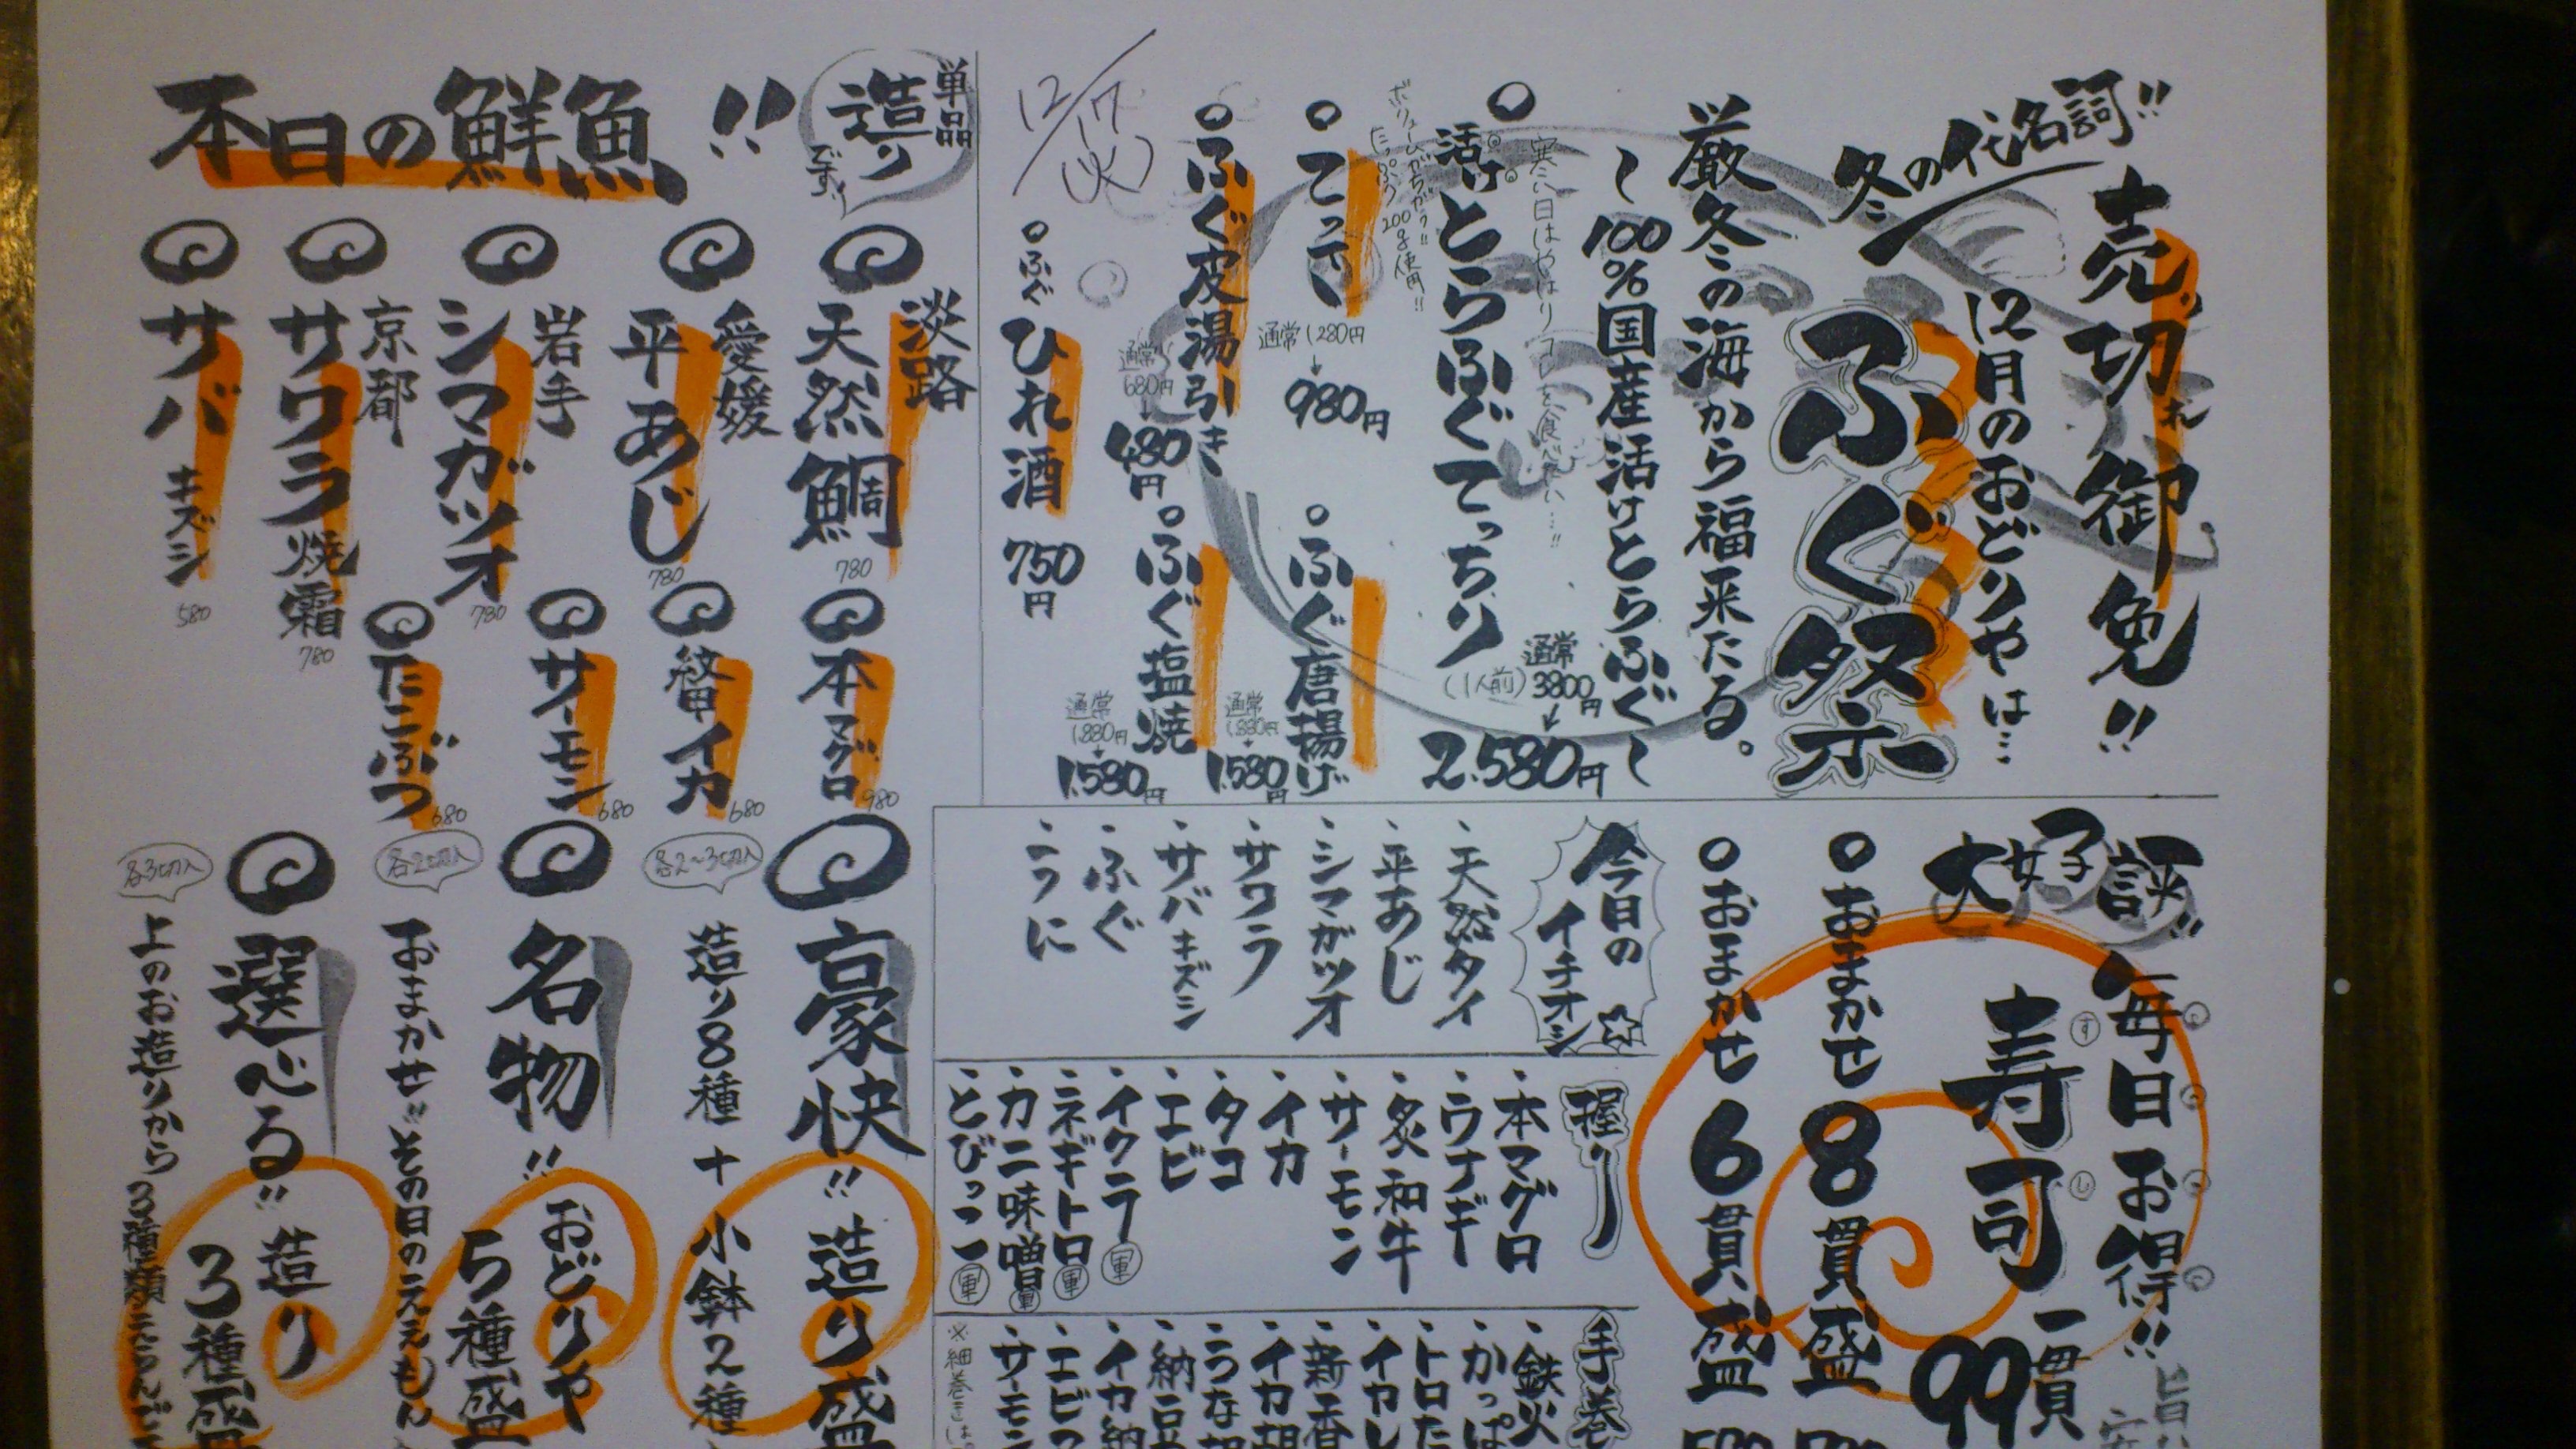 冬の代名詞!!
売切れ御免!!
12月のおどりやは…
ふぐ祭
厳冬の海から福来たる。
〜100%国産活けとらふぐ〜
寒い日はやはりコレを食べたい…!!
活けとらふぐてっちり
(1人前)
通常
3800円
↓
2.580円
たっぷり200g使用!!
てっさ
通常1280円
↓
980円
ふぐ唐揚げ
通常
1.880円
↓
1.580円
ふぐ皮湯引き
通常
680円
↓
480円
ふぐ塩焼
通常
1.880円
↓
1.580円
12/17
(火)
ふぐひれ酒
750円
本日の鮮魚!!
単品
造り
でーす!
淡路
天然鯛
780
愛媛
平あじ
780
岩手
シマガツオ
780
京都
サワラ焼霜
780
サバキズシ
580
本マグロ
980
紋甲イカ
680
サーモン
680
たこぶつ
680
豪快!!造り盛
各2〜3切入
造り8種+小鉢2種
名物!!おどりや
5種盛
各2切入
おまかせ!!その日のええもん
選べる!!造り
3種盛
各3切入
上のお造りから3種類えらんで
大好評!!
毎日お得!!
寿司
すし
一貫
99
おまかせ8貫盛
おまかせ6貫盛
今日の
イチオシ
・天然タイ
・平あじ
・シマガツオ
・サワラ
・サバキズシ
・ふぐ
・こうに
握り
・本マグロ
・ウナギ
・炙和牛
・サーモン
・イカ
・タコ
・エビ
・イクラ(軍)
・ネギトロ(軍)
・カニ味噌(軍)
・とびっこ(軍)
手巻
・鉄火
・かっぱ
・トロた
・イヤし
・新香
・イカ胡
・こうな胡
・納豆
・イカ納
・エビつ
・サーモン
※細巻きは